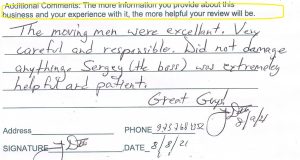 Additional Comments: The more information you provide about this
business and your experience with it, the more helpful your review will be.
The moving men were excellent. Very
careful and responsible. Did not damage
anything. Sergey (the boss) was extremely
helpful and patient.
Great Guys!
8/9/21
Address
PHONE 973 768 1252
SIGNATURE
DATE 8/8/21